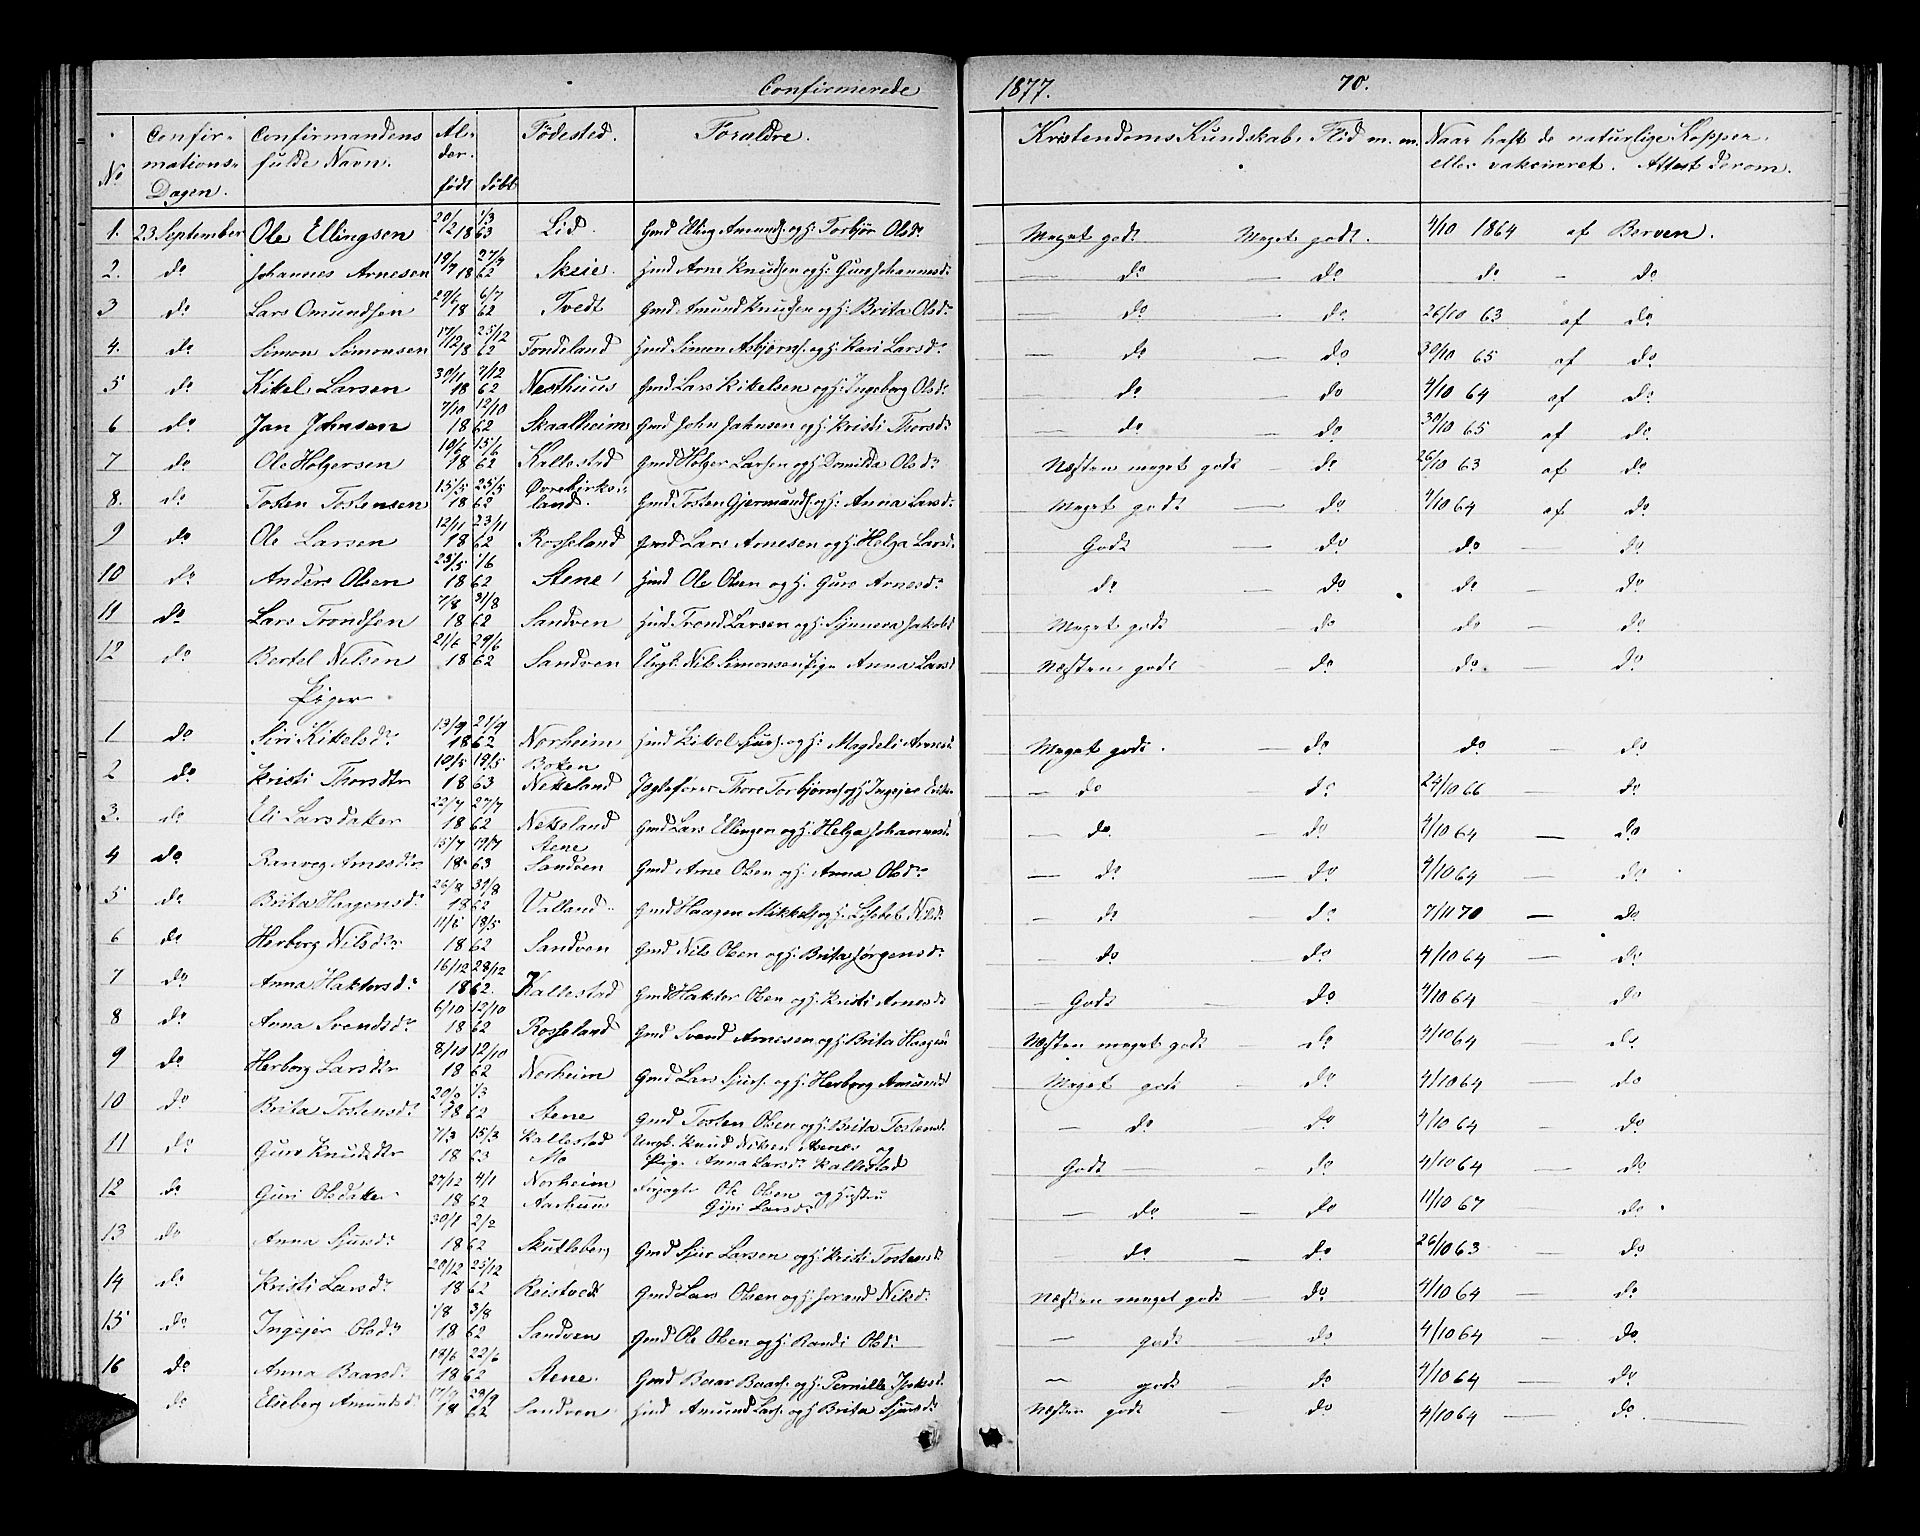 Confirmerede 1877. 70.
No Confirmations-Dagen. Confirmandens fulde Navn. Alder. født døbt Fødested. Foraldre. Kristendoms Kundskab. Flid m. m. Naar haft de naturlige Kopper eller vaksineret. Attest derom.
1. 23 September Ole Ellingsen 20/2 1863 1/3 Lid. Gmd Elling Amunds. og h: Torbjør Olsdr Meget godt Meget godt. 4/10 1864 af Berven.
2. do Johannes Arnesen 18 62 Skeie. Hmd Arne Knudsen og h: Guro Johannesdr — do — do do - do
3 do Lars Omundsen 29/6 6/7 18 62 Tvedt Gmd Amund Knudsen og h: Brita Olsdr — do — do 26/10 63 af do
4. do Simon Simonsen 17/12 25/12 18 62 Tondeland Hmd Simon Asbjørns. og h: Kari Larsdr — do — do 30/10 65 af do
5 do Kikel Larsen 30/11 7/12 18 62 Nesthuus Gmd Lars Kikelsen og h: Ingeborg Olsdr — do — do 4/10 64 af do
6 do Jan Johnsen 7/10 12/10 18 62 Skaalheim Gmd John Johnsen og h: Kristi Thorsdr — do — do 30/10 65 af do
7 do Ole Holgersen 10/6 15/6 18 62 Kallestad Gmd Holger Larsen og h: Domilda Olsdr Næsten meget godt — do 26/10 63 af do
8. do Tosten Tostensen 15/5 25/5 18 62 Øvrebirkeland. Gmd Tosten Gjermunds. og h: Anna Larsdr Meget godt — do 4/10 64 af do
9 do Ole Larsen 12/11 23/11 18 62 Rosseland Gmd Lars Arnesen og h: Helga Larsdr Godt — do do - do
10 do Anders Olsen 23/5 1/6 18 62 Stene Hmd Ole Olsen og h: Guro Arnesdr do — do do - do
11 do Lars Trondsen 7/8 31/8 18 62 Sandven Hmd Trond Larsen og h: Synneva Jakobsd Meget godt — do do - do
12 do Bertel Nilsen 21/6 29/6 18 62 Sandven Ungk. Nils Simonsen Pige Anna Larsd Næsten godt — do do - do
Piger
1 do Siri Kikelsdr 13/9 21/9 18 62 Norheim Hmd Kikel Sjurs. og h: Magdeli Arnesd Meget godt. — do do - do
2 do Kristi Thorsdtr 10/5 19/5 18 63 Botten Nekeland Thore Torbjørns. og h: Ingejer — do — do 24/10 66 — do
3. do Eli Larsdatter 22/7 27/7 18 62 Nekeland Gmd Lars Ellingsen og h: Helga Johannesd. — do — do 4/10 64 — do
4 do Ranveg Arnesdtr 15/7 19/7 18 63 Stene Sandven Gmd Arne Olsen og h: Anna Olsdr — do — do 4/10 64 — do
5 do Brita Haagensdr 26/8 31/8 18 62 Valland Gmd Haagen Mikkels. og h: Lisbet Nilsd — do — do 7/11 70 — do
6 do Herborg Nilsdr 11/5 18/5 18 62 Sandven Gmd Nils Olsen og h: Brita Jørgensdr — do — do 4/10 64 — do
7 do Anna Haktorsdr 16/12 28/12 18 62. Kallestad Gmd Haktor Olsen og h: Kristi Arnesdr - Godt - do 4/10 64 — do
8 do Anna Svendsdr 6/10 12/10 18 62 Rosseland Gmd Svend Arnesen og h: Brita Haagens Næsten meget godt — do 4/10 64 — do
9 do Herborg Larsdtr 8/10 12/10 18 62 Norheim Gmd Lars Sjurs. og h: Herborg Amundsd Meget godt — do 4/10 64 — do
10 do Brita Tostensdr 1/3 18 62 Stene Gmd Tosten Olsen og h: Brita Tostensd. — do — do 4/10 64 — do
11 do Guro Knudsdtr 7/3 15/3 18 63 Kallestad Mo Ungk. Knud Nilsen Stene og Pig. Anna Larsdr Kallestad Godt — do 4/10 64 — do
12 do Guri Olsdatter 27/12 4/1 18 62 Norheim Aarhuus Ole Olsen og Hustru Larsdr — do — do 11/10 67 — do
13 do Anna Sjursdr 30/1 2/2 18 62 Skutleberg Gmd Sjur Larsen og h: Kristi Tostensdr — do — do 26/10 63 — do
14 do Kristi Larsdr 20/12 25/12 18 62 Reistvedt Gmd Lars Olsen og h: Jorand Nilsdr Næsten meget godt — do 4/10 64 — do
15 do Ingejer Olsdr 1/8 3/8 18 62 Sandven Gmd Ole Olsen og h: Randi Olsdr — godt — do 4/10 64 — do
16 do Anna Baarsdr 18/6 22/6 18 62 Stene. Gmd Baar Baars. og h: Pernille — godt — do 4/10 64 — do
do Elseberg Amundsdr 18 62 Sandven Hmd Amund Lars. og h: Brita Sjursdr Næsten godt — do 4/10 64 — do